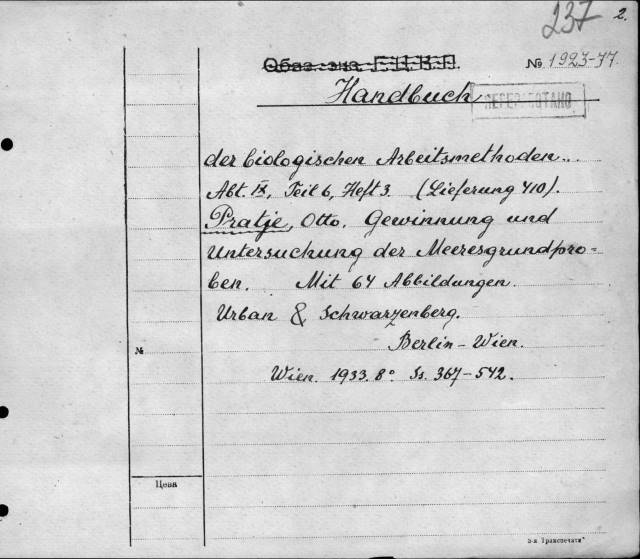 237 2.
Обяз. экз. Г.Ц.К.П.
№ 1923-77.
Handbuch
der biologischen Arbeitsmethoden..
Abt. IX, Teil 6, Heft 3. (Lieferung 410).
Pratje, Otto. Gewinnung und
Untersuchung der Meeresgrundpro-
ben. Mit 64 Abbildungen.
Urban & Schwarzenberg.
Berlin-Wien.
№
Wien. 1933. 8° Ss. 367-542.
Цена